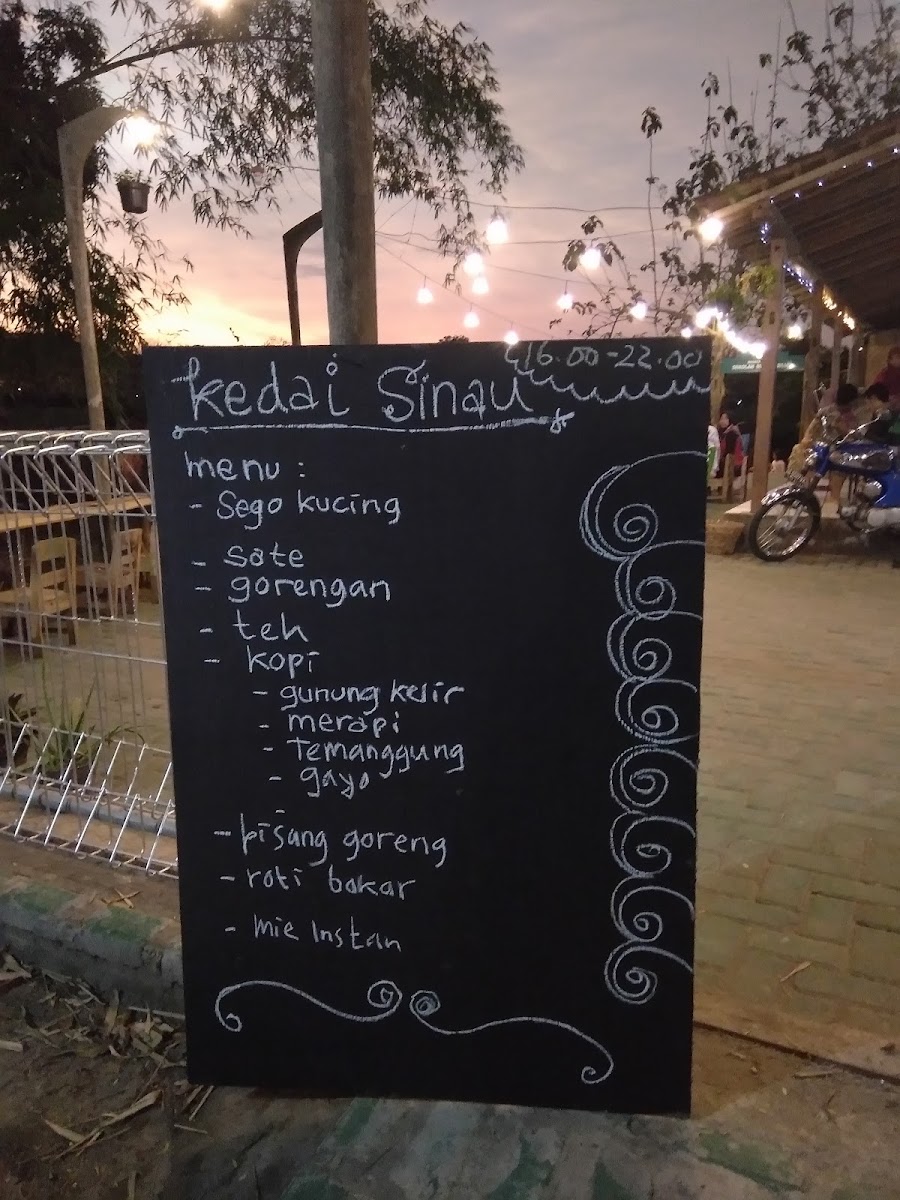 16.00-22.00
Kedai Sinau
menu :
- Sego kucing
- sate
- gorengan
- teh
- kopi
- gunung kelir
- merapi
- Temanggung
- gayo
-
- pisang goreng
- roti bakar
- mie Instan